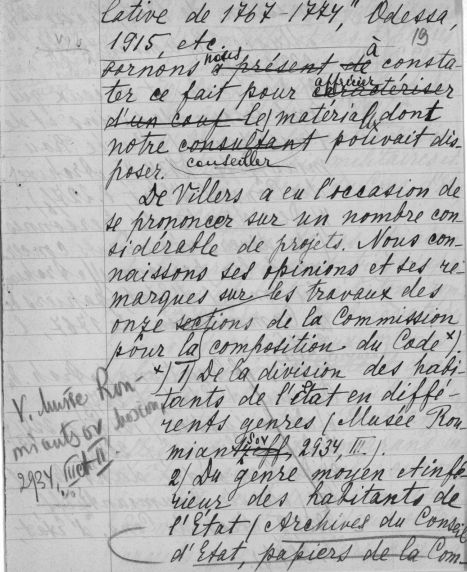 lative de 1767-1774," Odessa,
1915, etc.
19
bornons nous à présent de à consta-
ter ce fait pour caractériser apprécier
d'un coup les matériaux dont
notre consultant pouvait dis-
conseiller
poser.
De Villers a eu l'occasion de
se prononcer sur un nombre con
sidérable de projets. Nous con-
naissons ses opinions et ses re-
marques sur les travaux des
onze sections de la Commission
pour la composition du Code x).
x) 1) De la division des habi-
tants de l'état en diffé-
rents genres (Musée Rou
miantzoff, 2934, III.).
2) Du genre moyen et infé-
rieur des habitants de
l'Etat (Archives du Conseil
d'Etat, papiers de la Com-
V. Musée Rou-
miantsov
2934, III et II